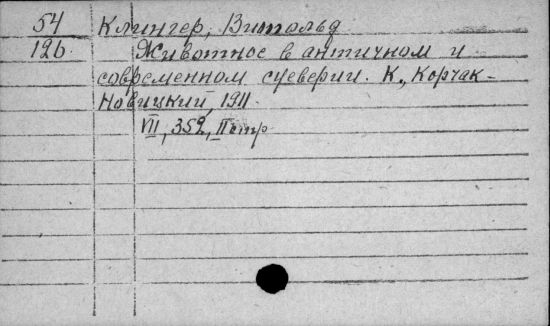 54 Клингер, Витольд
126. Животное в античном и
современном суеверии. К., Корчак-
Новицкий, 1911.
VII, 352, II стр